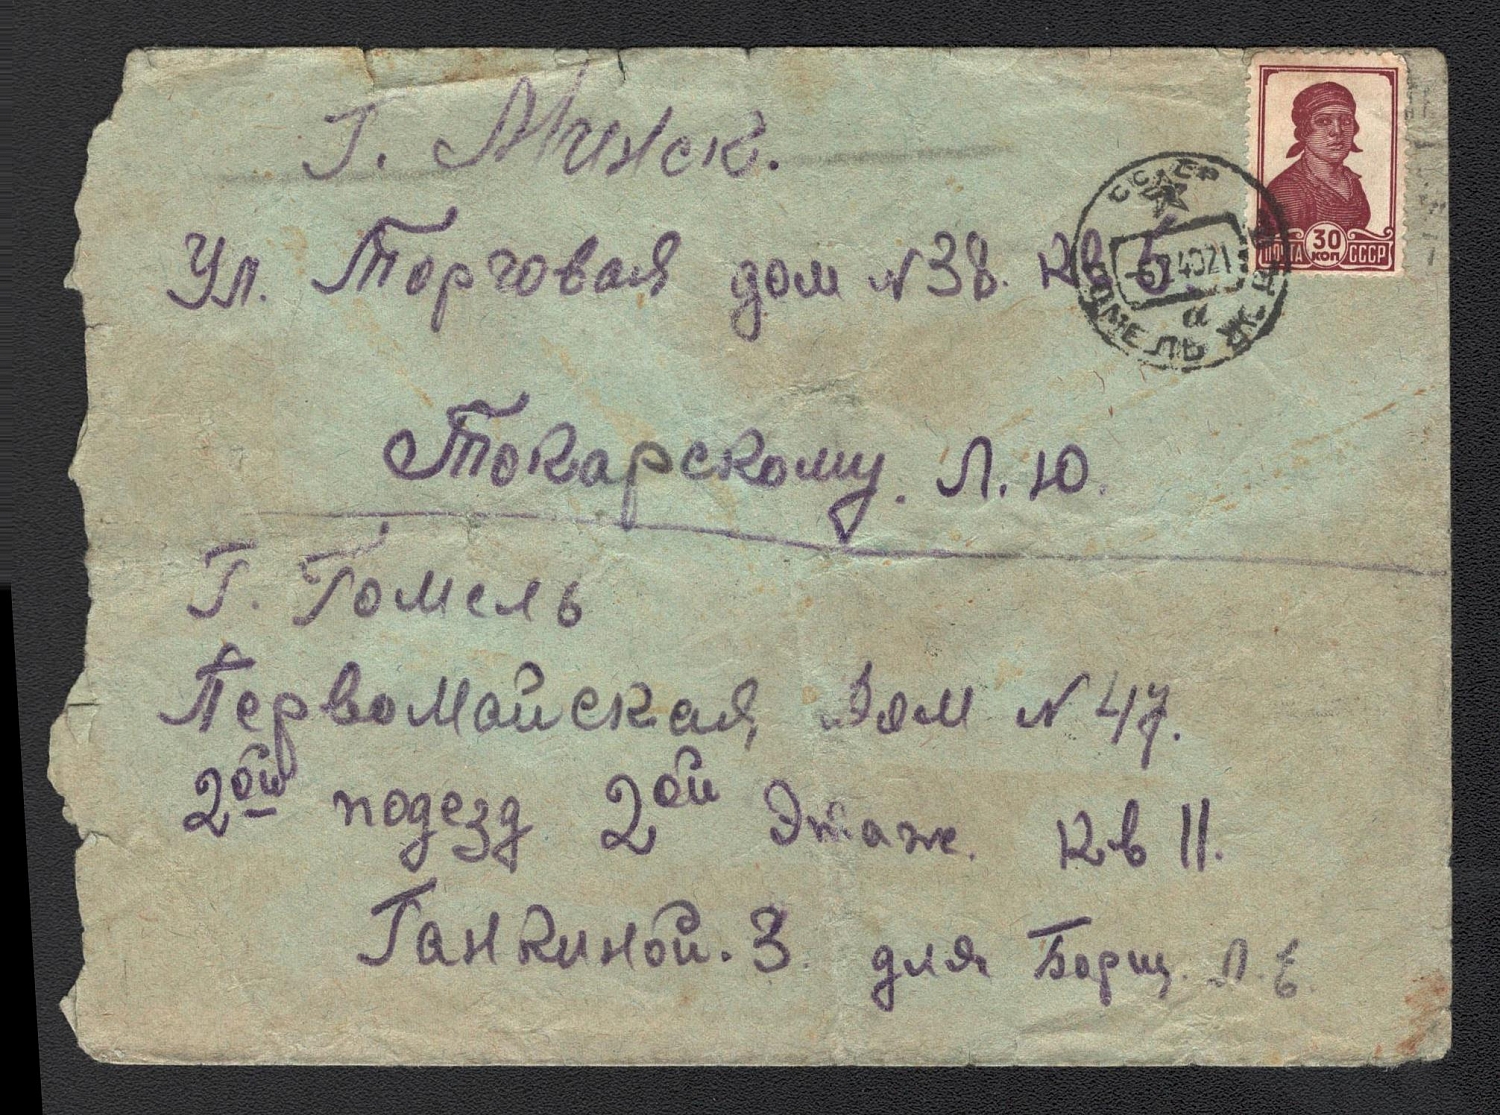 Г. Минск.
Ул. Торговая дом № 38. Кв 5
Токарскому. Л. Ю.
Г. Гомель
Первомайская, Дом № 47.
2ой подезд 2ой Этаж. Кв 11.
Ганкиной. З. для Борщ. Л. Е.
ПОЧТА 30 КОП СССР
СССР
7 40 21
а
ГОМЕЛЬ Ж.Д.